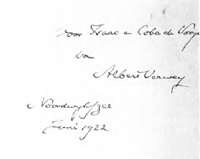 Voor Isaac en Coba de Vooys
van
Albert Verwey
Noordwijk/Zee
Juni 1922